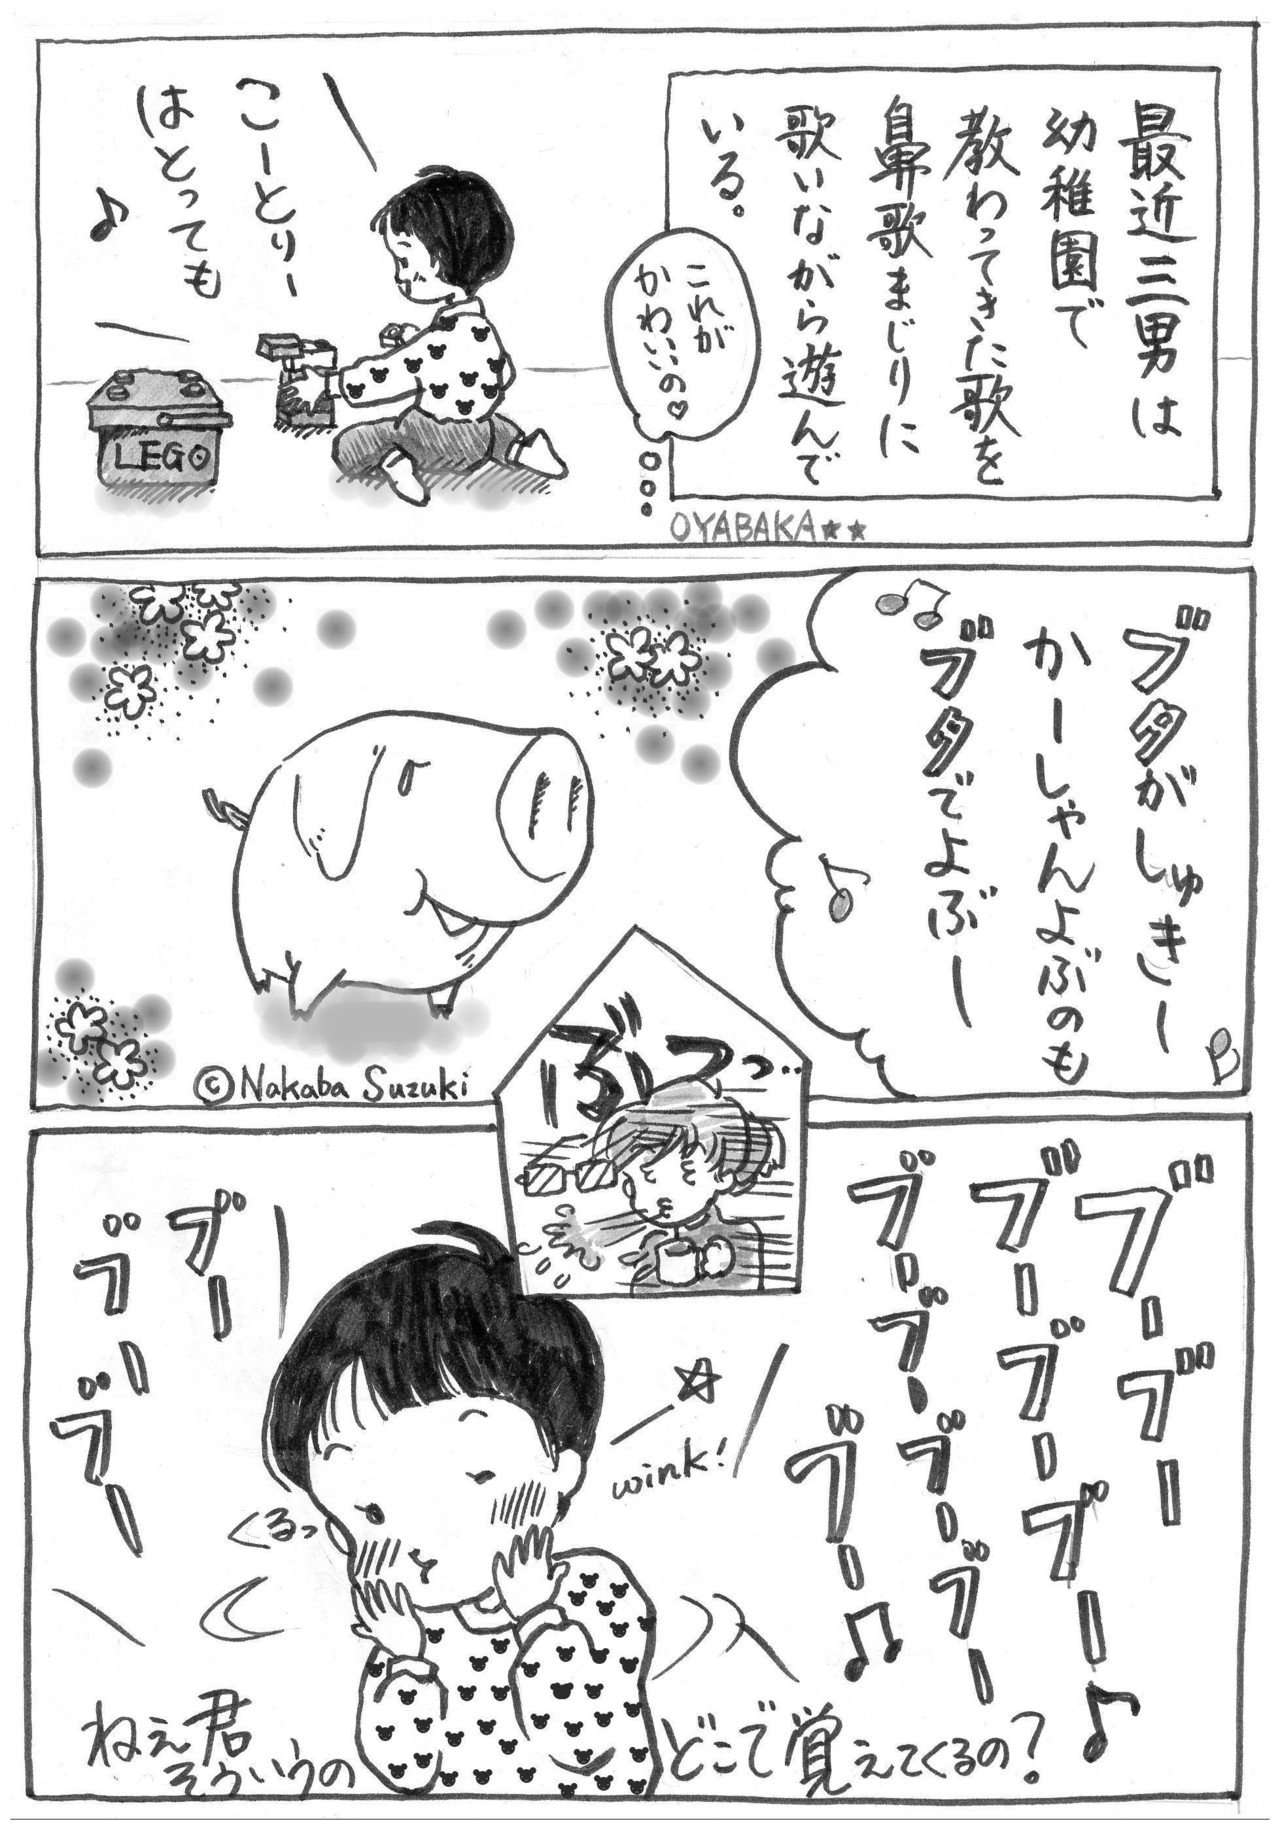 最近三男は
幼稚園で
教わってきた歌を
鼻歌まじりに
歌いながら遊んで
いる。
これが
かわいいの♡
OYABAKA★★
こーとりー
はとっても
♪
LEGO
ブタがしゅきー
かーしゃんよぶのも
ブタでよぶー
©Nakaba Suzuki
ぶふっっ…
ブーブー
ブーブーブー♪
ブーブーブーブー
ブー♫
ブー
ブーブー
wink!
くるっ
ねえ君
そういうの
どこで覚えてくるの?